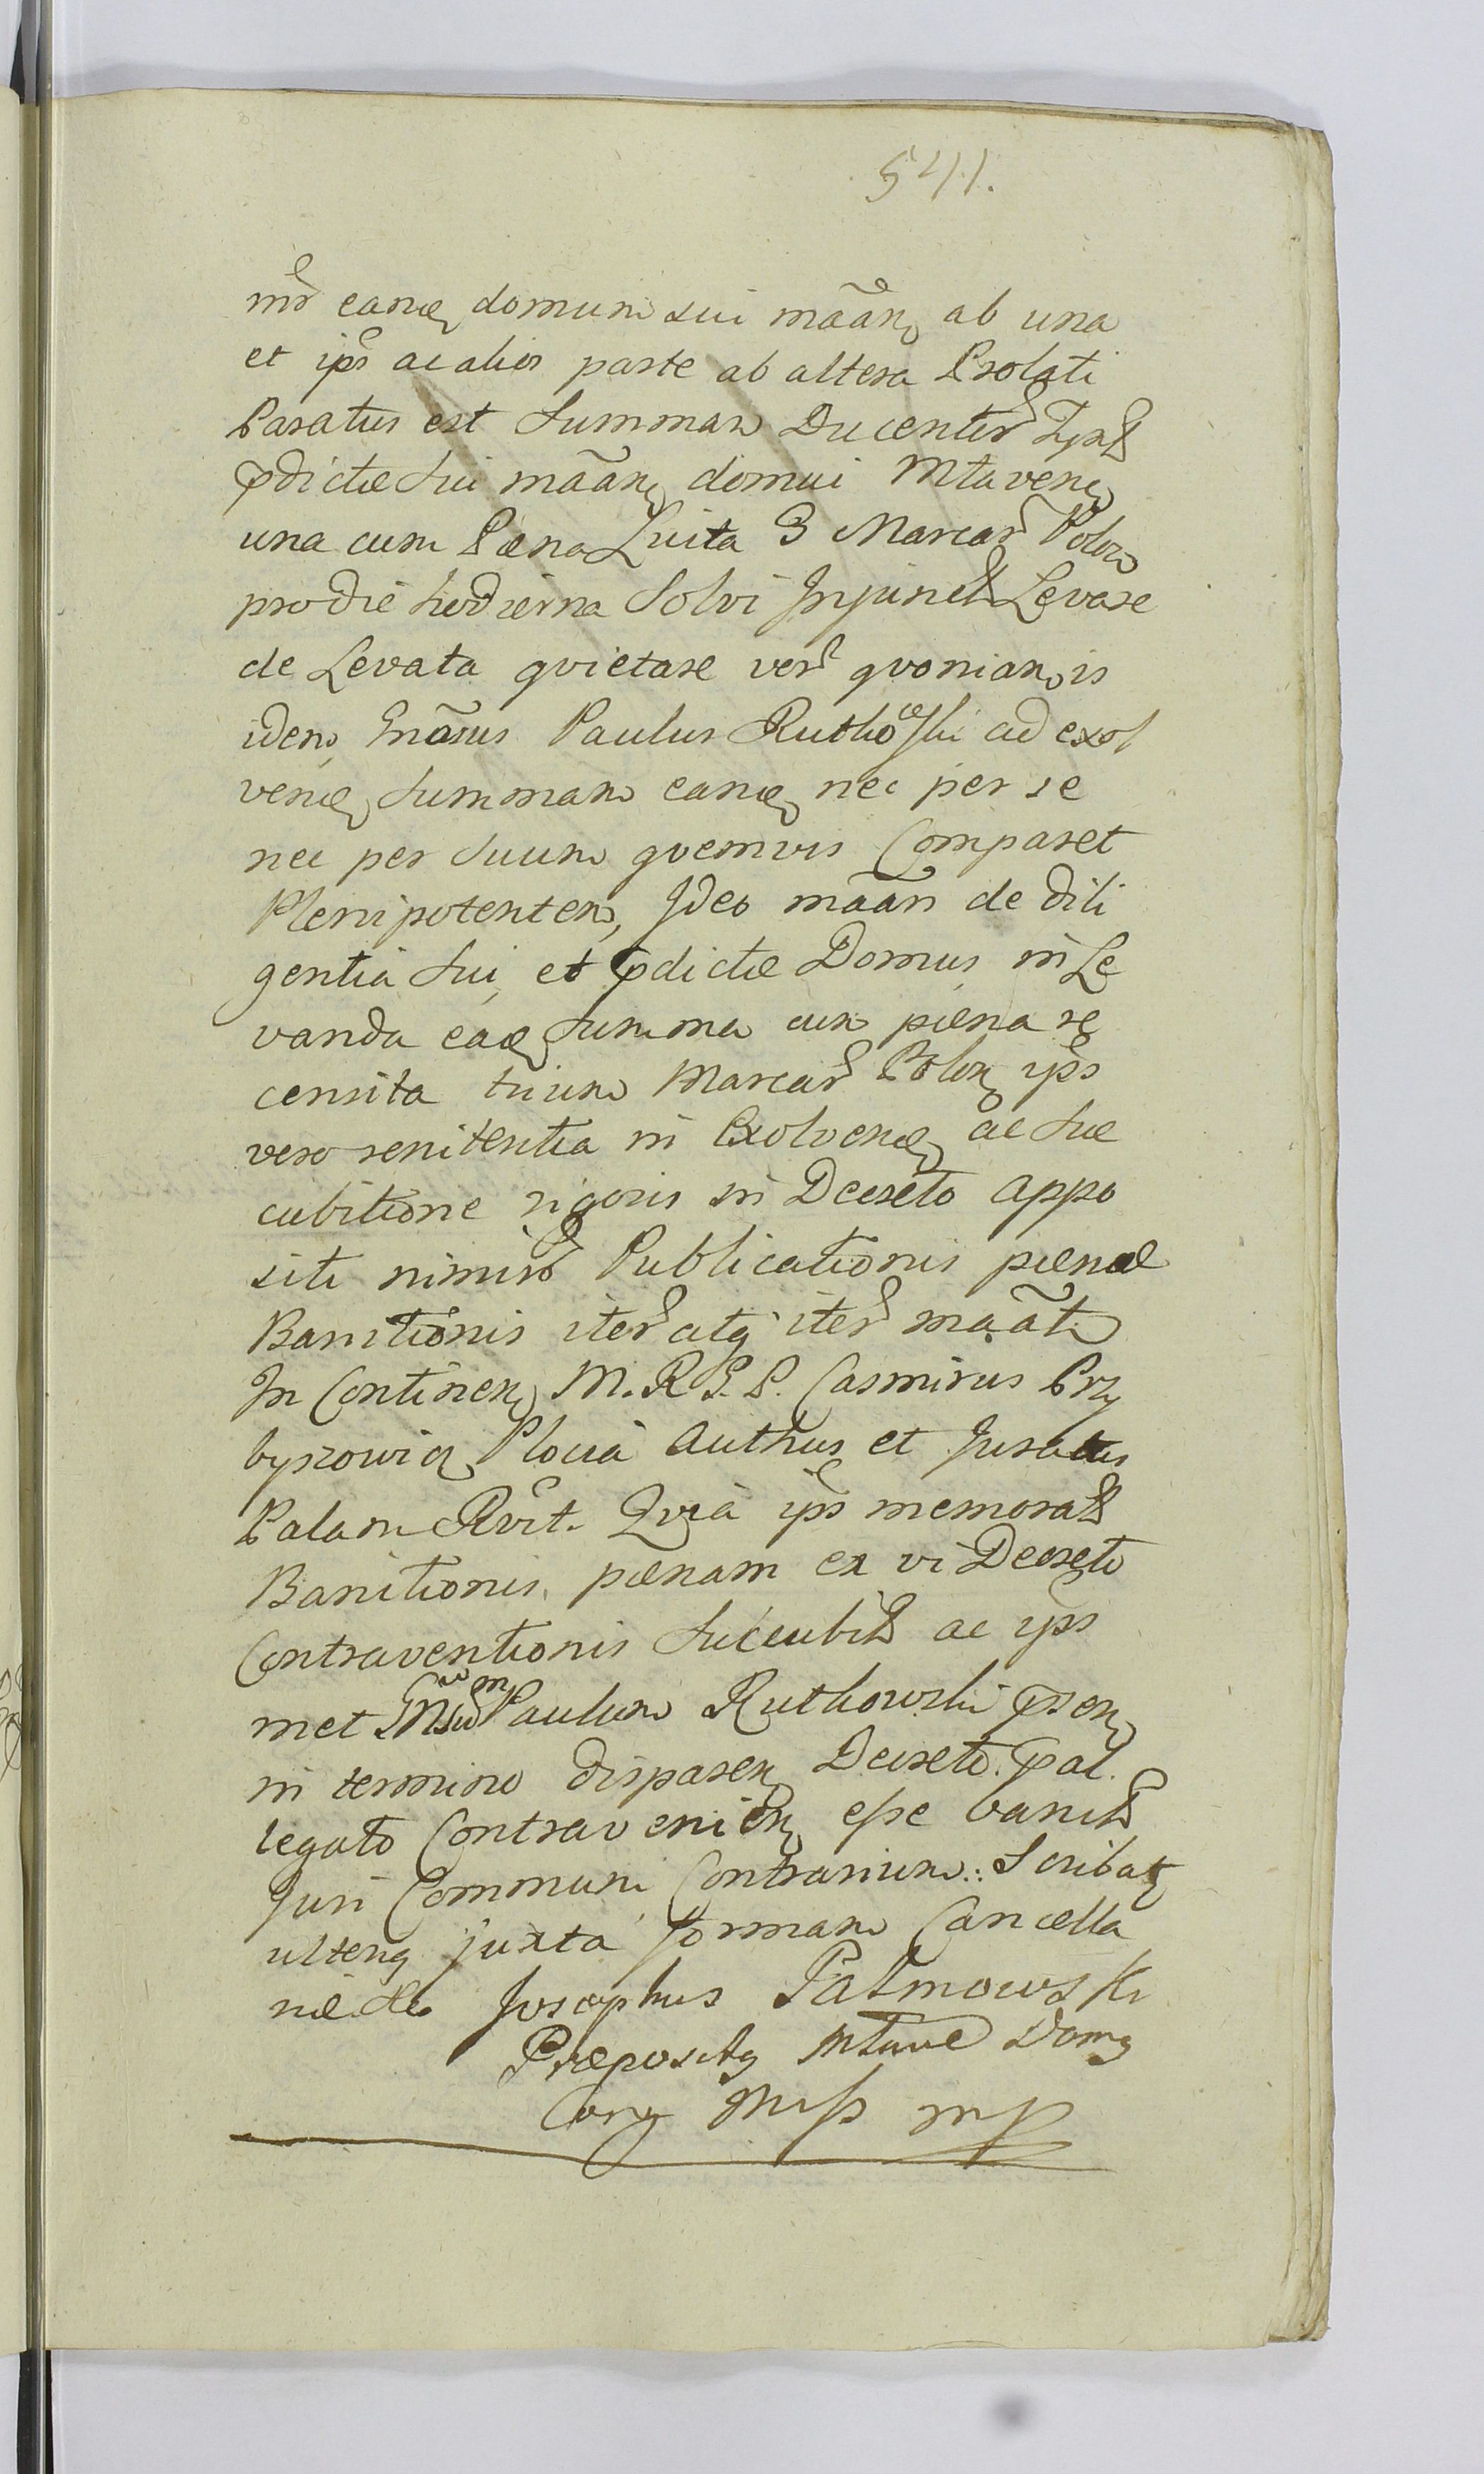 541.
inr̃ eandꝫ domum sui mãanꝫ ab una
et ips ac alios parte ab altera Prolati
Paratus est Summam Ducentor̃ Tynf
p̱dictæ sui mãanꝫ domui Mlavenꝫ
una cum Pæna Luita 3 Marcar̃ Polon
pro die hodierna Solvi Injunct Levare
de Levata qvietare ver̃ qvoniam is
idem Gnãsus Paulus Rutkowski ad exol
vendꝫ Summam eandꝫ nec per se
nec per Suum qvemvis Comparet
Plenipotentem, Ideo mãan de dili
gentia Sui, et p̱dictæ Domus in Le
vanda eadꝫ Summa cum pæna re
censita trium Marcar̃ Polonꝫ ips
vero renitentia in Exolvendꝫ ac suc
cubitione rigoris in Decreto appo
siti nimir̃ Publicationis pænæ
Banitionis iter̃ atqꝫ iter̃ mãat
In Continenꝫ M. R. G. P. Casmirus Prz
byszowicz Plocia Authus et Juratus
Palam Rvit. Qvia ips memorat
Banitionis pænam ex vi Decreto
Contraventionis Succubit ac ips
met Gnsum Paulum Rutkowski p̱senꝫ
in termino disparenꝫ Decreto p̱al.
legato Contravenienꝫ esse banit
Juri Communi Contrarium.: Scribatꝫ
ulterꝫ juxta formam Cancella
riæ Josephus Patmowski
Præpositꝫ Mlavꝫ Domꝫ
Congꝫ Miss mp